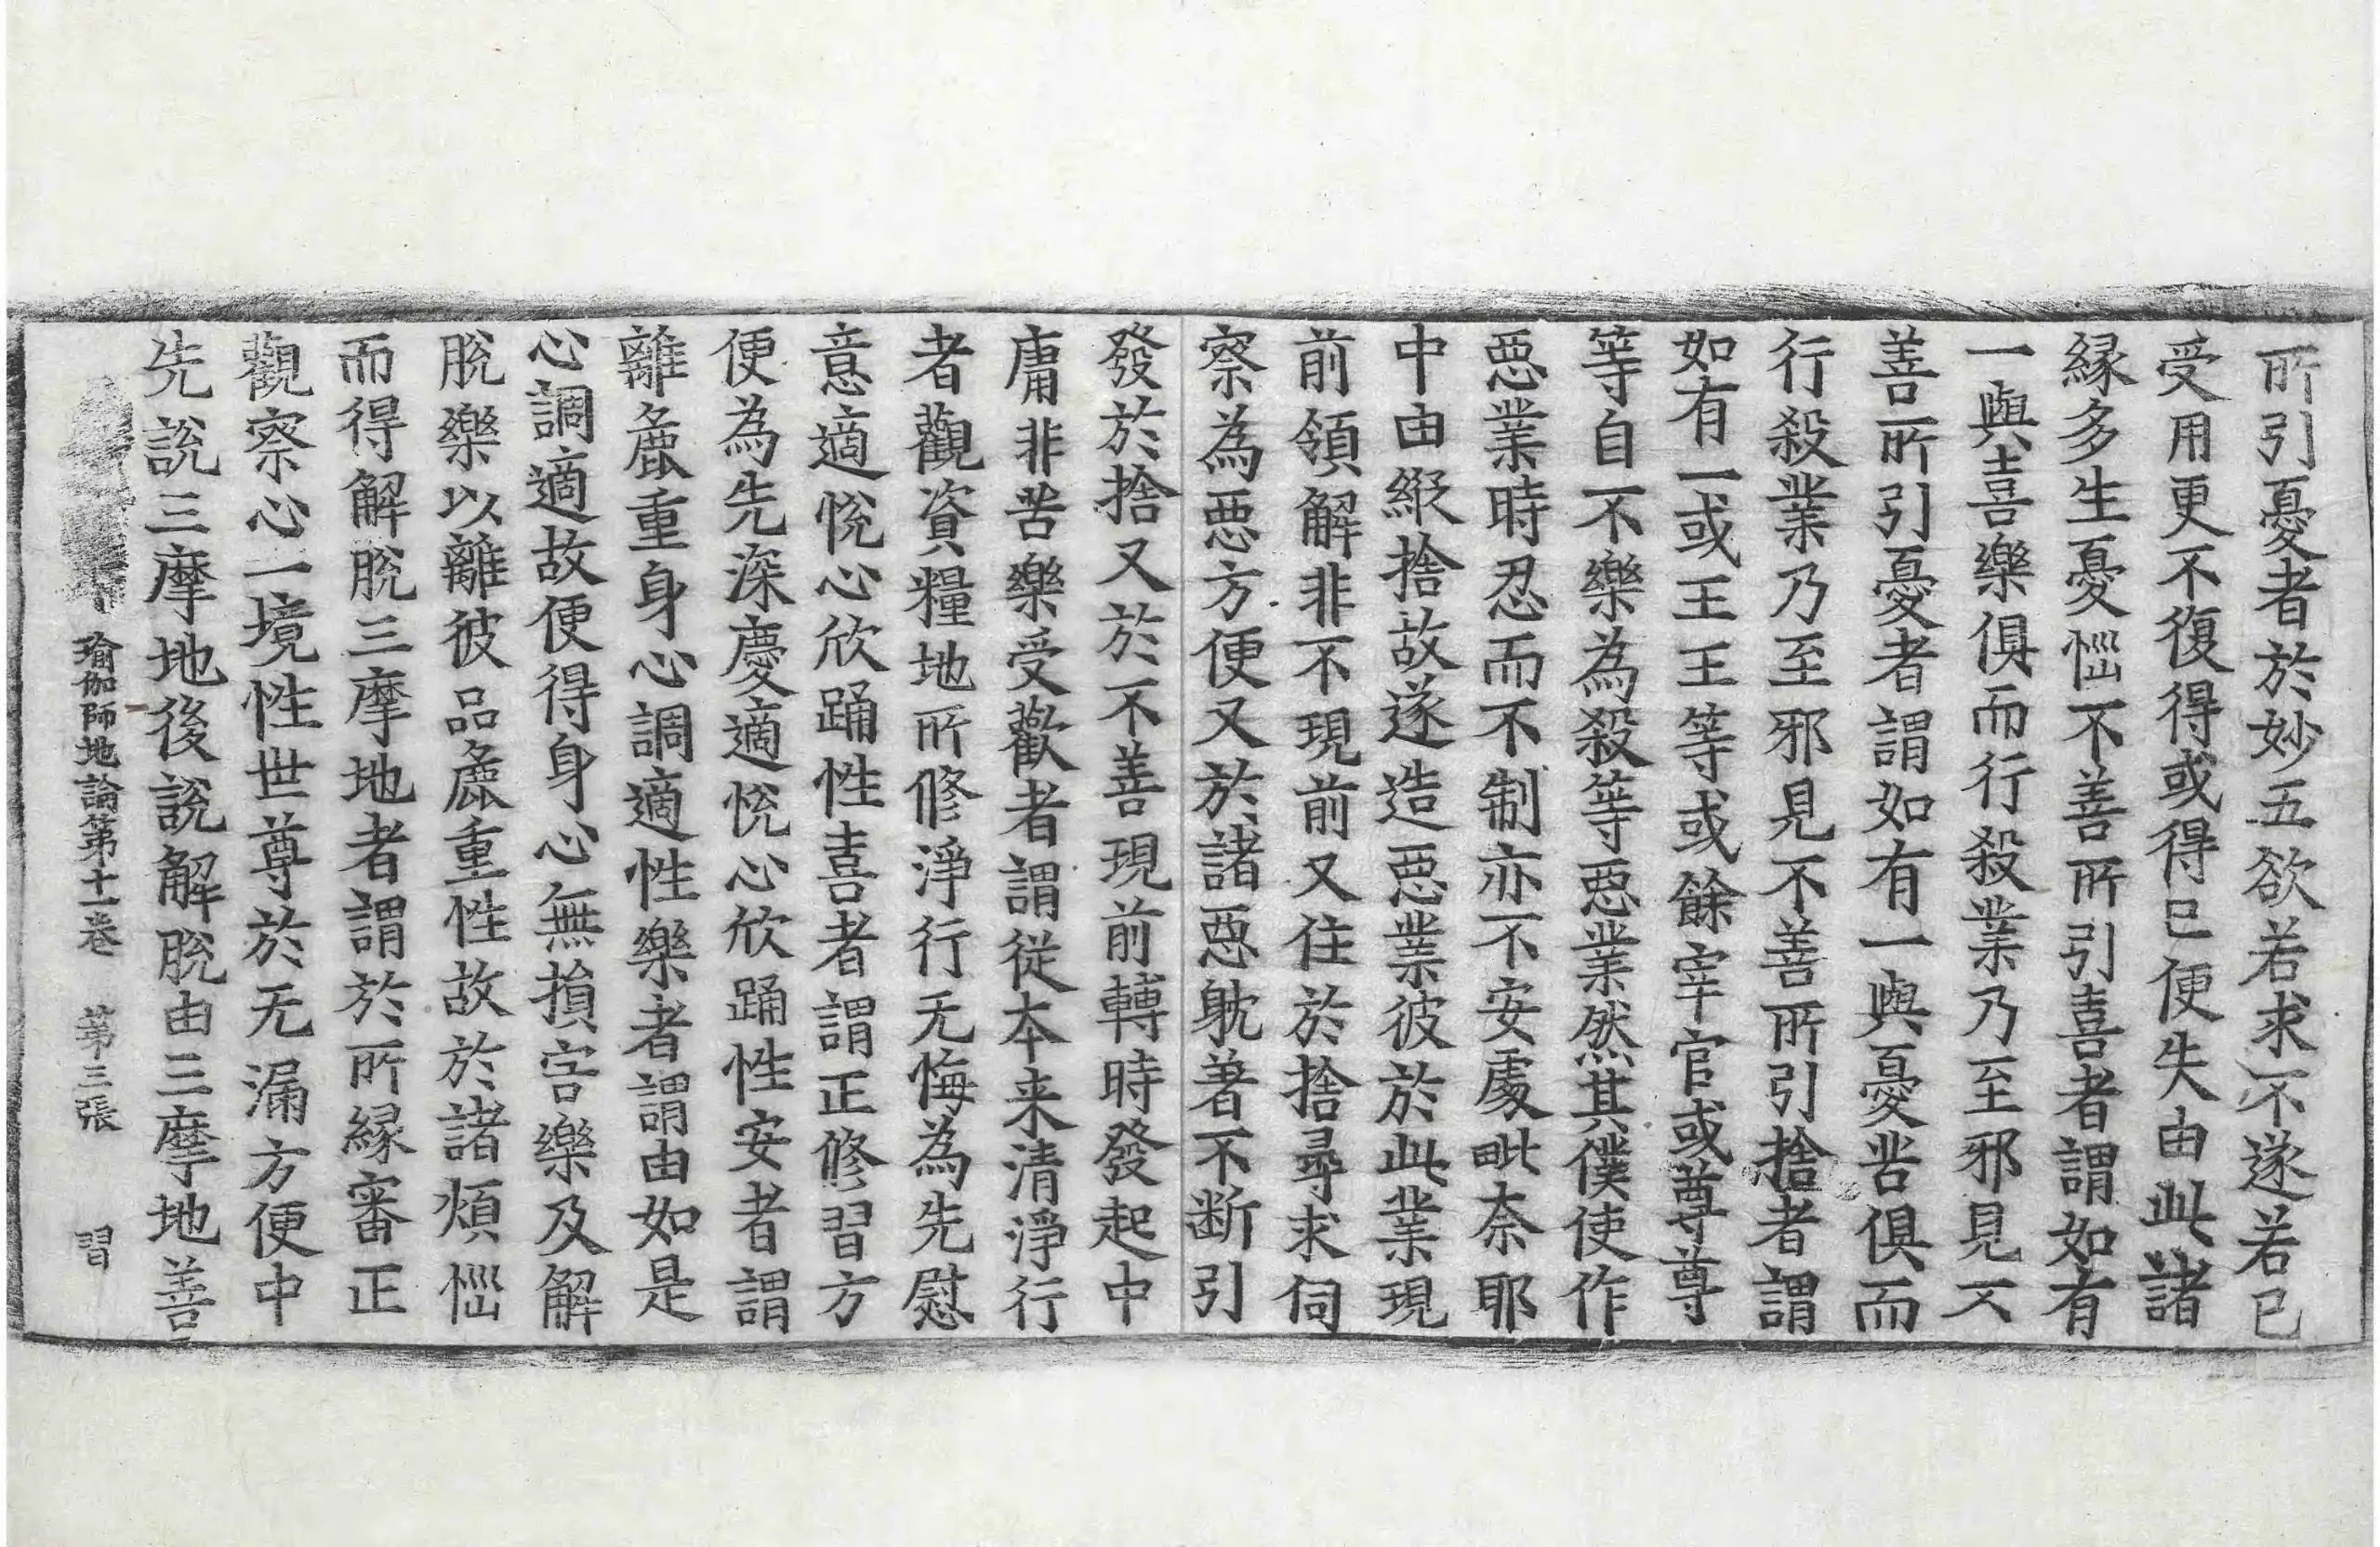 所引憂者於妙五欲若求不遂若已
受用更不復得或得已便失由此諸
縁多生憂惱不善所引喜者謂如有
一與喜樂俱而行殺業乃至邪見不
善所引憂者謂如有一與憂苦俱而
行殺業乃至邪見不善所引捨者謂
如有一或王王等或餘宰官或尊尊
等自不樂為殺等惡業然其僕使作
惡業時忍而不制亦不安處毗柰耶
中由縱捨故遂造惡業彼於此業現
前領解非不現前又住於捨尋求伺
察為惡方便又於諸惡躭著不断引
發於捨又於不善現前轉時發起中
庸非苦樂受歡者謂從本来清淨行
者觀資糧地所修淨行无悔為先慰
意適悅心欣踊性喜者謂正修習方
便為先深慶適悅心欣踊性安者謂
離麁重身心調適性樂者謂由如是
心調適故便得身心無損害樂及解
脫樂以離彼品麁重性故於諸煩惱
而得解脫三摩地者謂於所縁審正
觀察心一境性世尊於无漏方便中
先說三摩地後說解脫由三摩地善
瑜伽師地論第十一卷 第三張 習